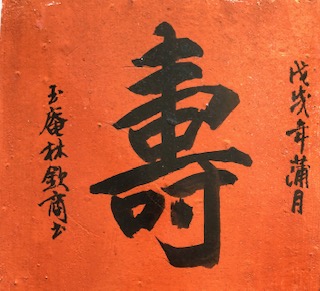 戊戌年蒲月
壽
玉庵林欽商书